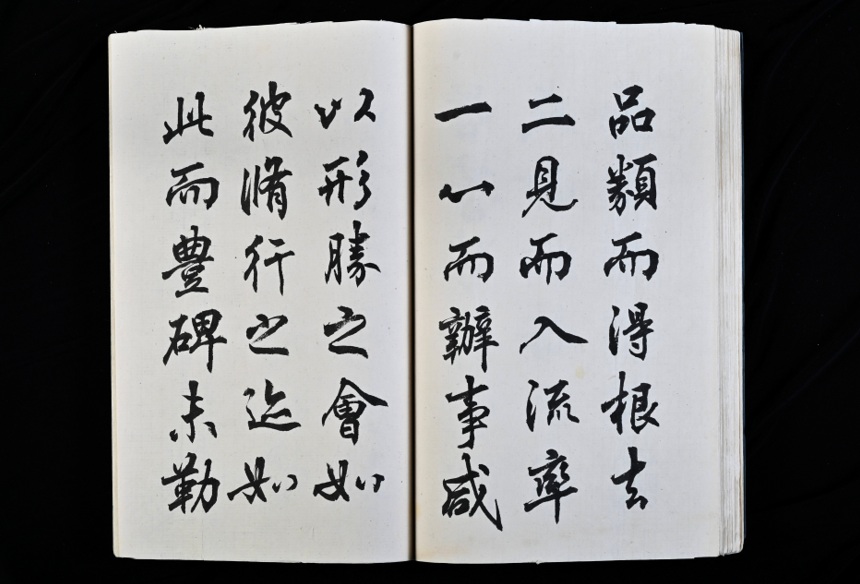 品類而得根去
二見而入流率
一心而辦事咸
以形勝之會如
彼脩行之迹如
此而豐碑未勒